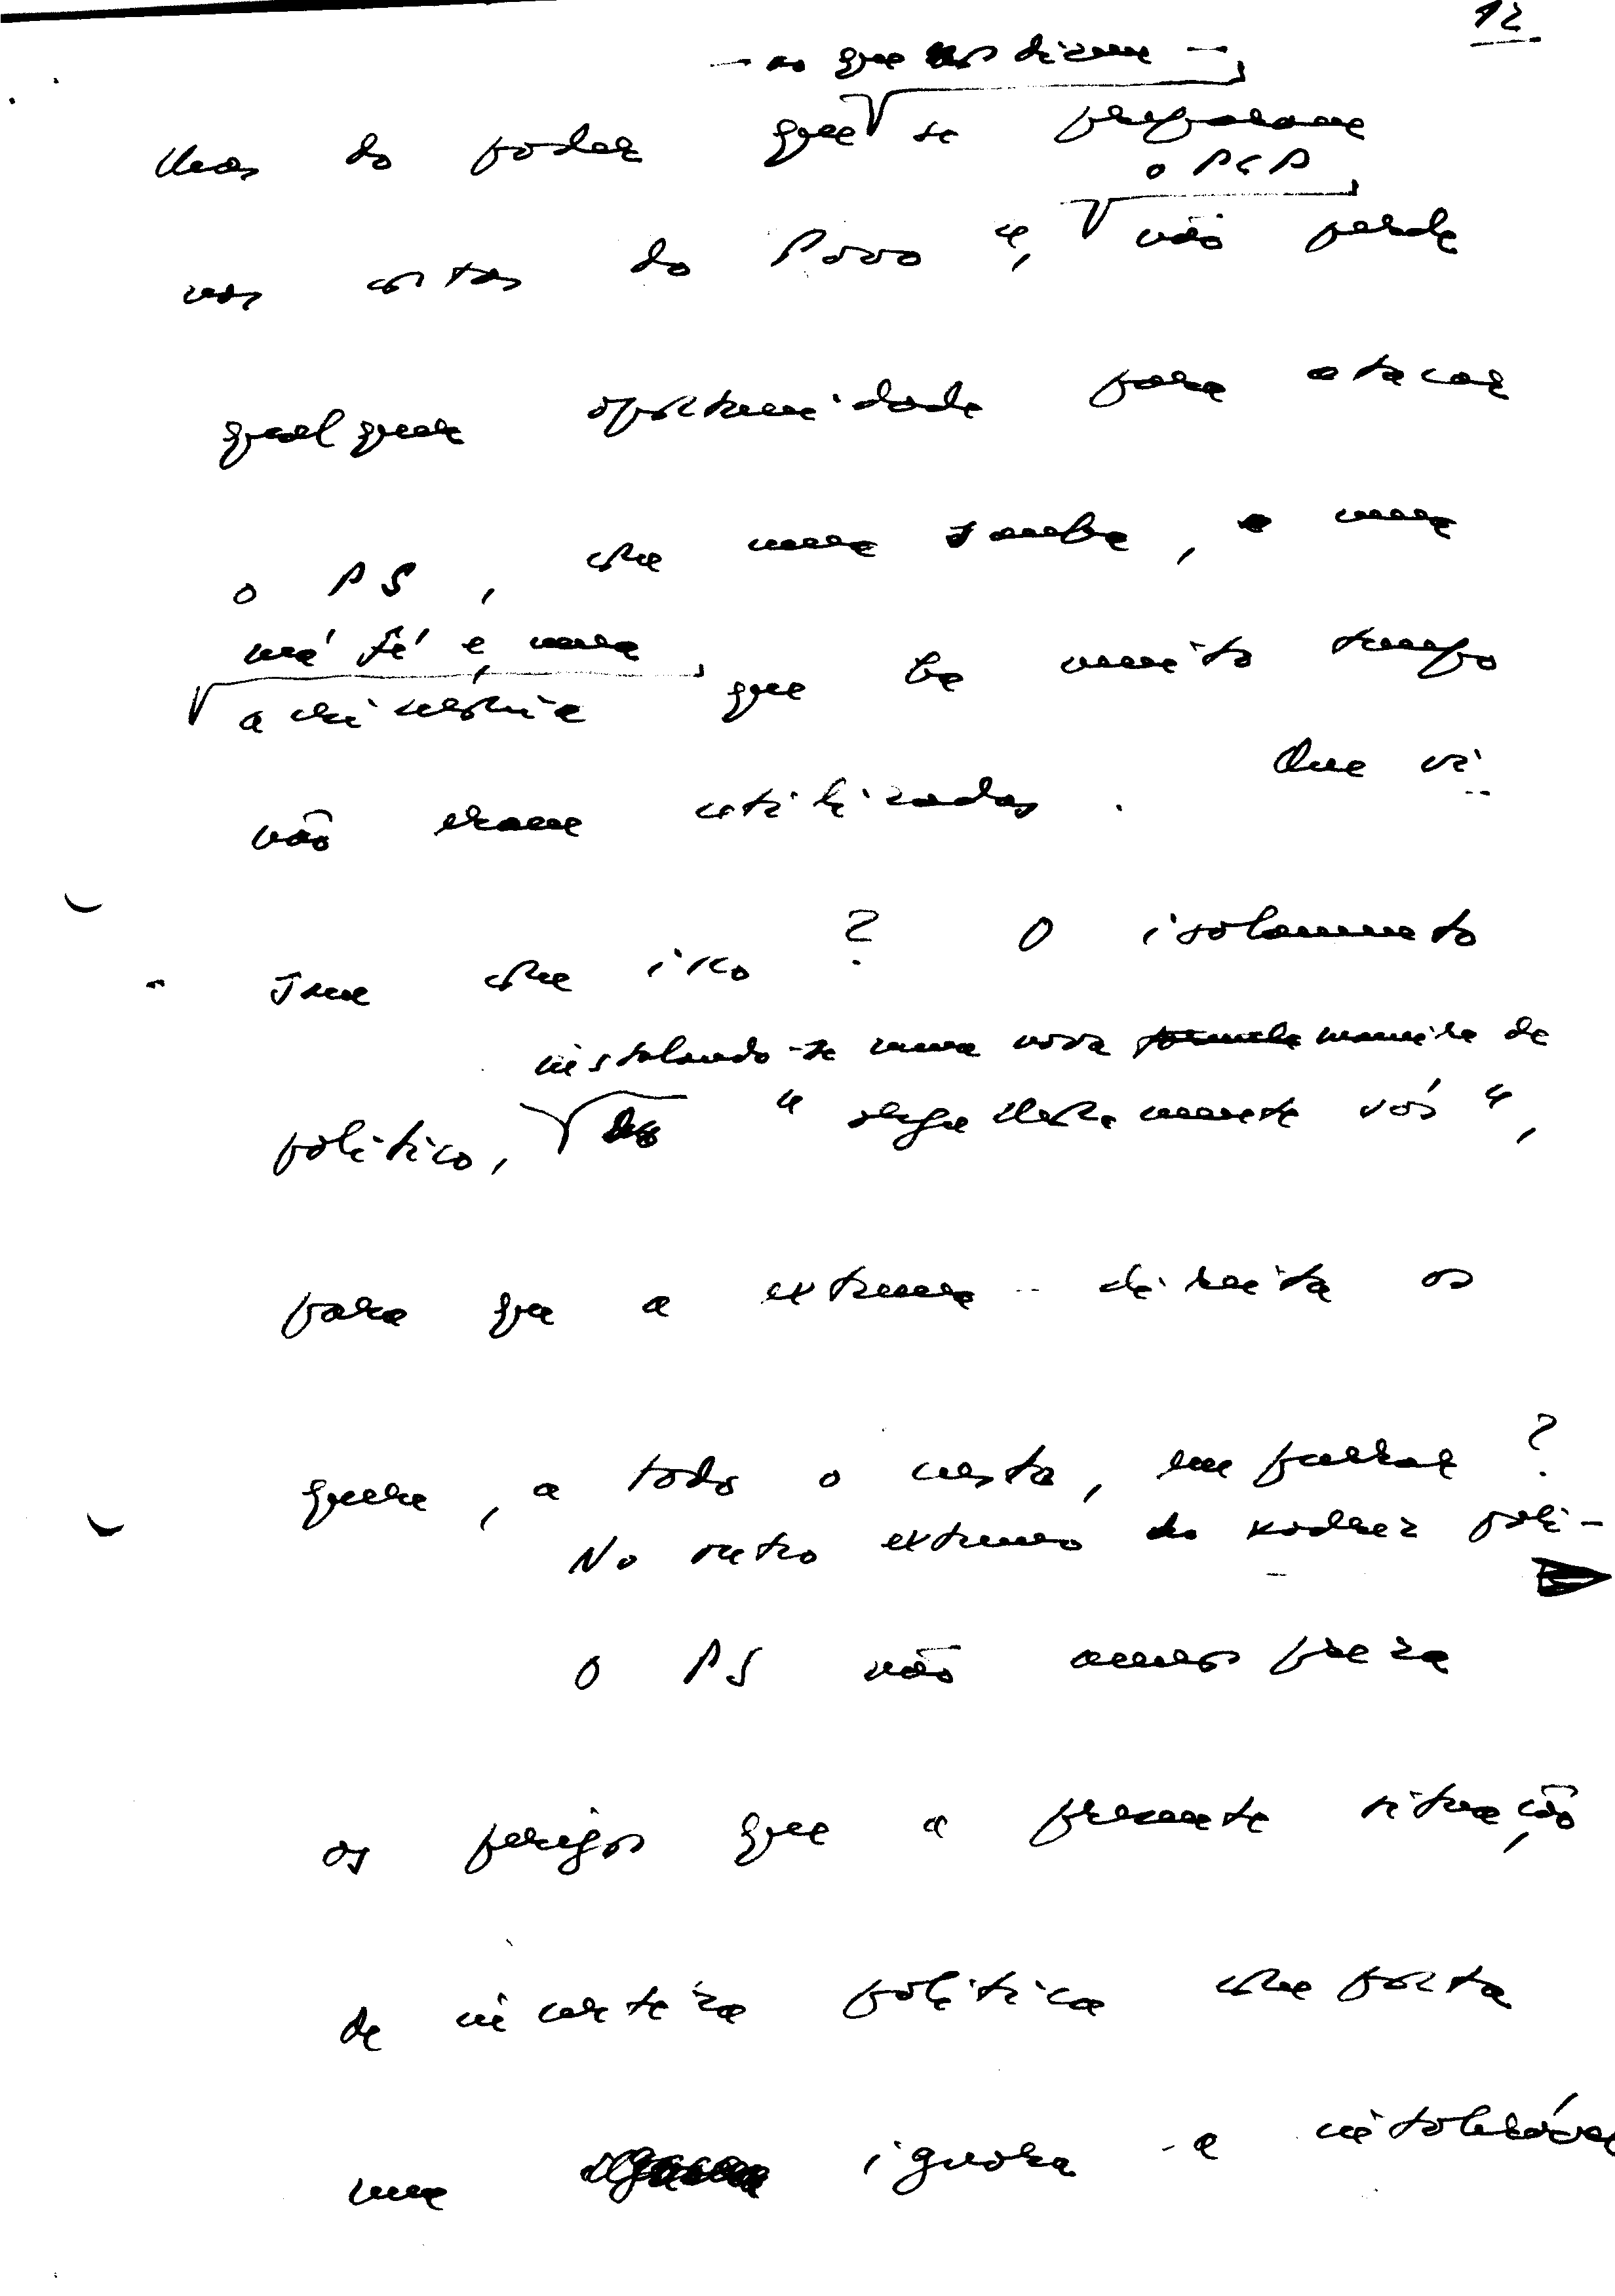 12
— ao que nos dizem —
do poder que se preparam
o PCP
nas costas do Povo", não perde
qualquer oportunidade para atacar
o PS, com uma sanha, uma
má fé e, uma
acrimónia que há muito tempo
não eram utilizadas. Que vi-
sam com isso? O isolamento
instalando-se numa nova maneira de
político, "orgulhosamente sós",
para que a extrema-direita os
quere, a todo o custo, empurrar?
No outro extremo do xadrez polí-
O PS não menospreza
os perigos que a presente situação
de incerteza política comporta
nem ignora a intoleráve